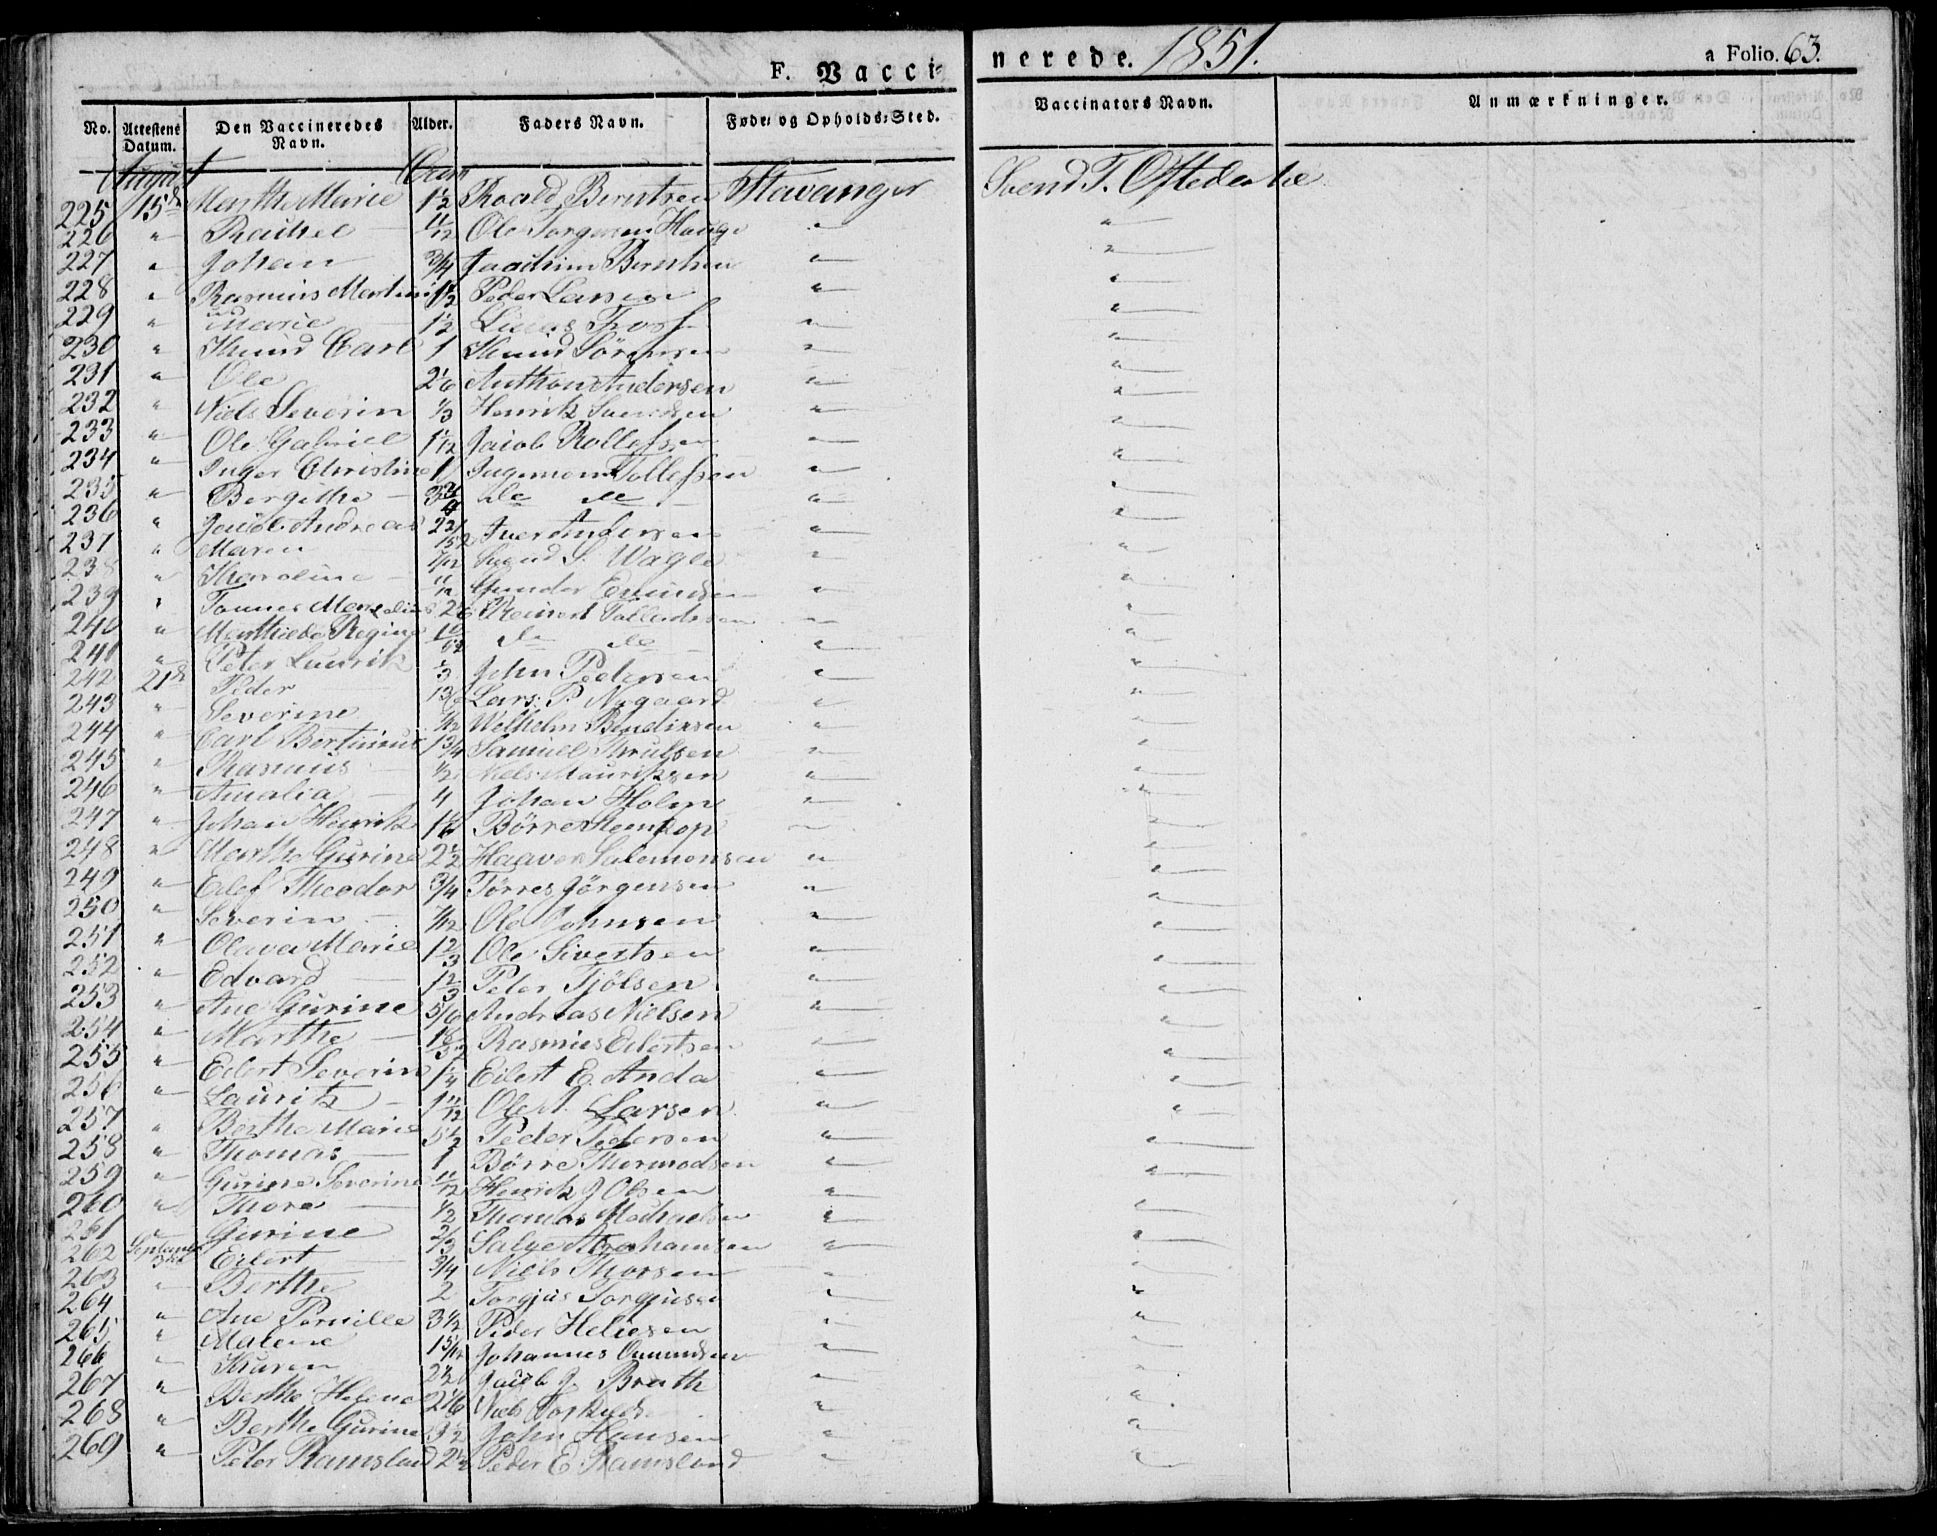 F. Vacci-
nerede. 1851.
a Folio. 63.
No. Attestens Datum. Den Vaccineredes Navn. Alder. Faders Navn. Føde- og Opholds-Sted. Vaccinators Navn. Anmærkninger.
August
225 15de Marthe Marie 1½ Roald Berntsen Stavanger Svend T. Oftedahl
226 " Rachel 11/12 Ole Torgersen Hauge " "
227 " Johan 3/4 Joachim Berntsen " "
228 " Rasmus 1½ Peder Larsen " "
229 " Marie 1½ " "
230 " Knud Carl 1 Knud Sörensen " "
231 " Ole Anthon Andersen " "
232 " Niels Severin 1/3 Henrik " "
233 " Ole Gabriel 1 1/12 Jacob Rollefsen " "
234 " Inger Christine 1 Tollefsen " "
235 " Bergithe 3 3/4 do do " "
236 " Jacob Andreas Iver Andersen " "
237 " Maren Svend S. Vagle " "
238 " Karoline 7/12 Gunder " "
239 " Tonnes Reinert " "
240 " Mathilde Regine do do " "
241 " Peter Laurits 2/3 John Pedersen " "
242 21de Peder Lars P. Nygaard " "
243 " Severine 7/12 Wilhelm Bendixsen " "
244 " Carl Bertinius 1 3/4 Samuel " "
245 " Rasmus 1/2 Niels Mauritzsen " "
246 " Amalia 4 Johan Holm " "
247 " Johan Henrik 1 1/6 Börre " "
248 " Marthe Gurine 2½ Haaver Salomonsen " "
249 " Eilef Theodor 3/4 Törres Jörgensen " "
250 " Severin 7/12 Ole Johnsen " "
251 " Olava Marie 1 2/3 Ole Sivertsen " "
252 " Edvard 1 2/3 Peter Tjölsen " "
253 " Ane Gurine 5/6 Andreas Nielsen " "
254 " Marthe Rasmus Eilertsen " "
255 " Eilert Severin 1 1/4 Eilert E. Anda " "
256 " Lauritz 1 11/12 Ole Larsen " "
257 " Berthe Marie 5½ Peder Pedersen " "
258 " Thomas 1 Börre Thormodsen " "
259 " Gurine Severine 11/12 Henrik J Olsen " "
260 " Thore 1/2 Thomas " "
261 " Gurine 2/3 Salve Abrahamsen " "
262 Septemb. Eilert 3/4 Niels Thorsen " "
263 " Berthe 2 Torgjus Torgjusen " "
264 " Ane Pernille 3½ Peder Heliesen " "
265 " Malene Johannes " "
266 " Karen 2½ Jacob J. " "
267 " Berthe Helene 2 1/6 Niels " "
268 " Berthe Gurine 3½ John Hansen " "
269 " Peter Ramsland 2½ Peder E. Ramsland " "